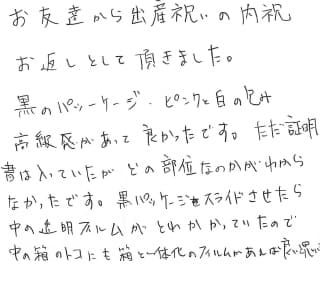 お友達から出産祝いの内祝
お返しとして頂きました。
黒のパッケージ、ピンクと白の包み
高級感があって良かったです。ただ証明
書は入っていたがどの部位なのかがわから
なかったです。黒パッケージをスライドさせたら
中の透明フィルムがとれかかっていたので
中の箱のトコにも箱と一体化のフィルムがあれば良い思い